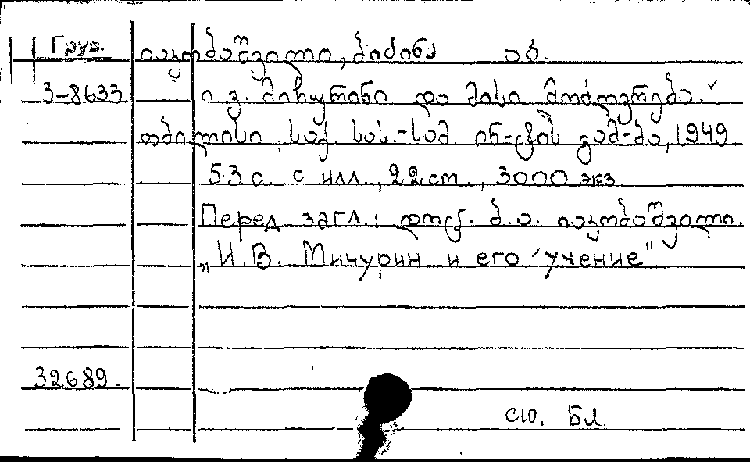 Груз. იაკობაშვილი, ბიძინა აბ.
3-8633 ი. ვ. მიჩურინი და მისი მოძღვრება.
თბილისი, საქ. სას.-სამ. ინ-ტის გამ-ბა, 1949
53 с. с илл., 22 cm., 3000 экз
Перед загл.: დოც. ბ. ა. იაკობაშვილი.
„И. В. Мичурин и его учение"
32689.
Бл